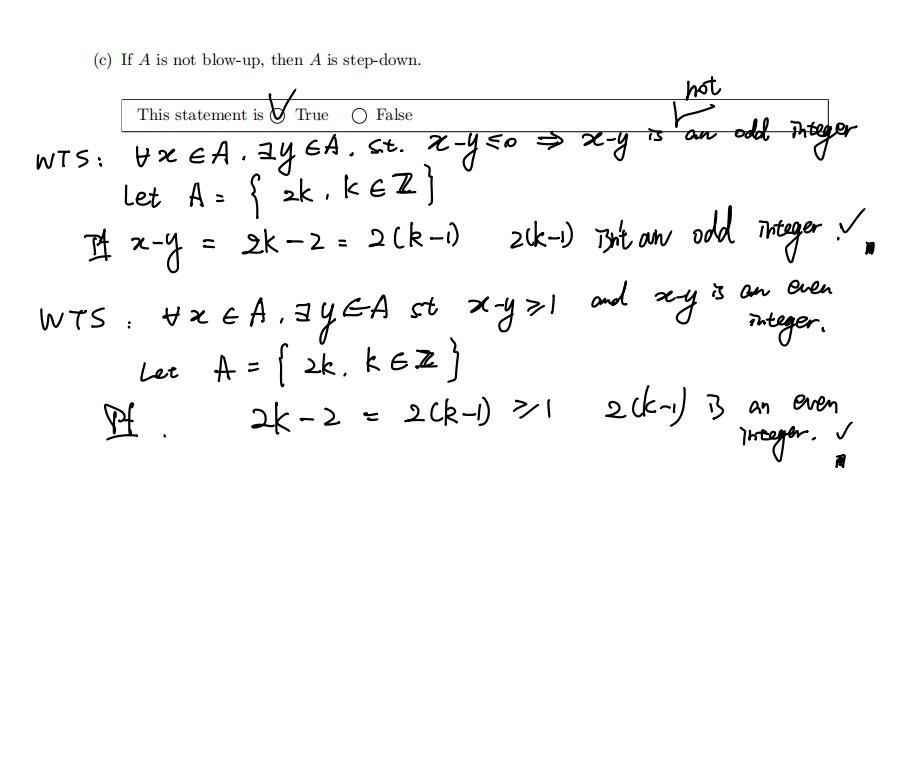 (c) If A is not blow-up, then A is step-down.
not
This statement is ○ True ○ False
WTS: ∀x ∈ A, ∃y ∈ A, s.t. x-y ≤ 0 ⇒ x-y is an odd integer
Let A = { 2k, k ∈ ℤ }
Pf x-y = 2k-2 = 2(k-1) 2(k-1) isn't an odd integer ✓. ∎
WTS: ∀x ∈ A, ∃y ∈ A st x-y ≥ 1 and x-y is an even
integer.
Let A = { 2k, k ∈ ℤ }
Pf. 2k-2 = 2(k-1) ≥ 1 2(k-1) is an even
integer. ✓ ∎